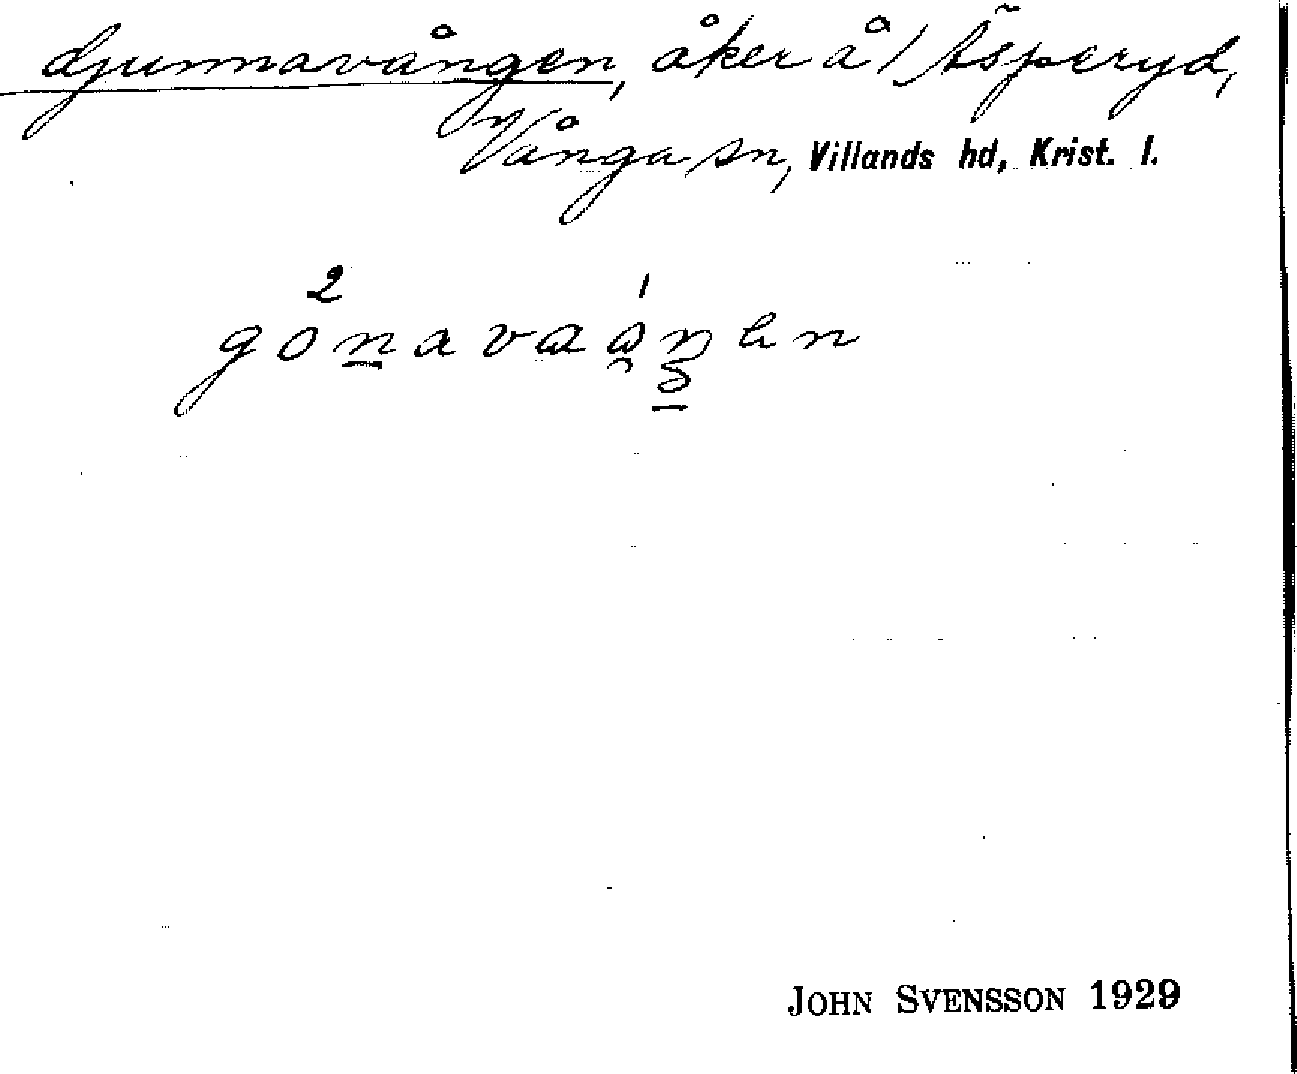 djunnavången, åker å 1 Äsperyd,
Vånga sn, Villands hd, Krist. l.
2 1
JOHN SVENSSON 1929